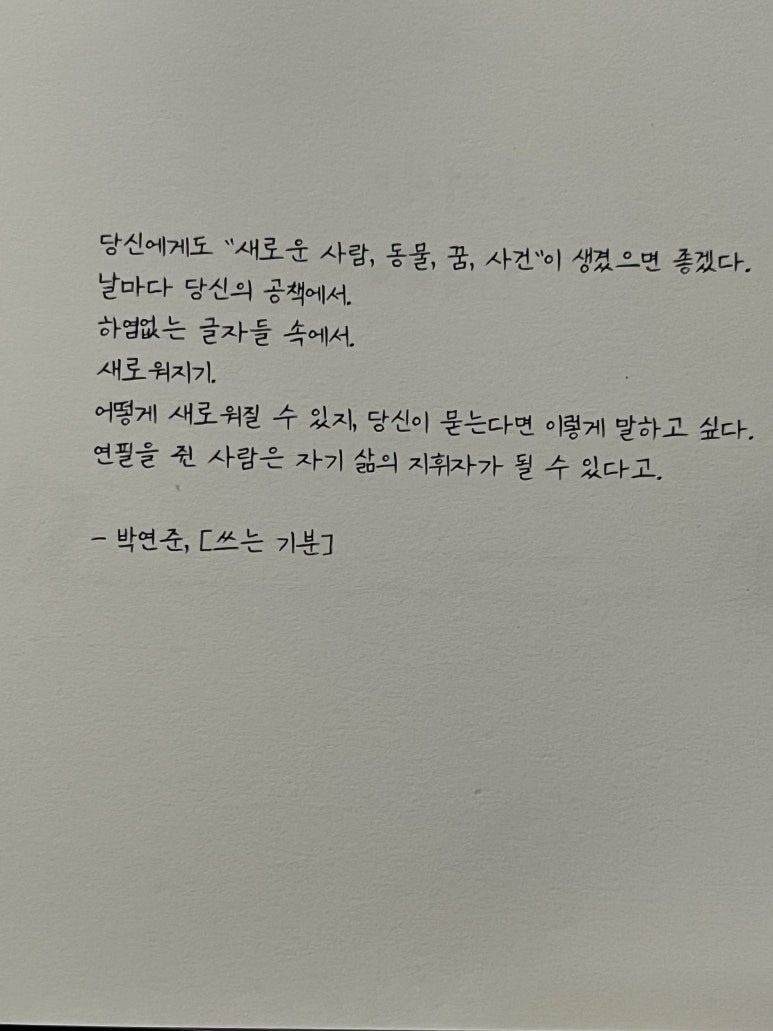 당신에게도 "새로운 사람, 동물, 꿈, 사건"이 생겼으면 좋겠다.
날마다 당신의 공책에서.
하염없는 글자들 속에서.
새로워지기.
어떻게 새로워질 수 있지, 당신이 묻는다면 이렇게 말하고 싶다.
연필을 쥔 사람은 자기 삶의 지휘자가 될 수 있다고.
- 박연준, [쓰는 기분]